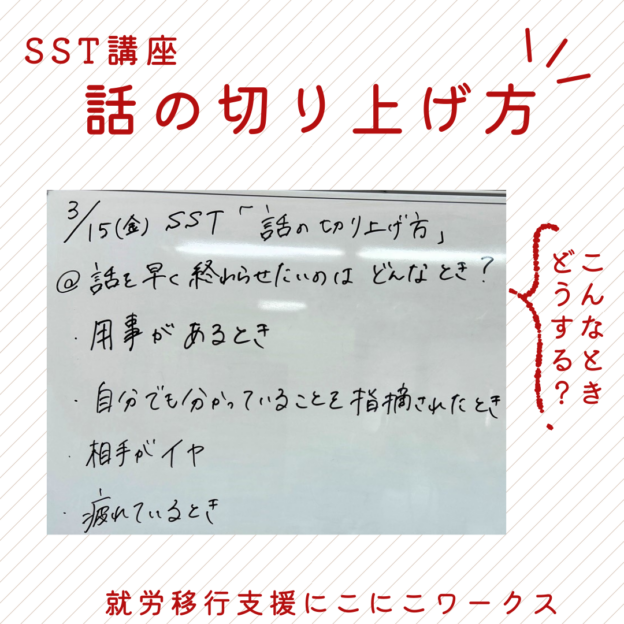 SST講座
話の切り上げ方
3/15(金) SST「話の切り上げ方」
@話を早く終わらせたいのはどんなとき?
・用事があるとき
・自分でも分かっていることを指摘されたとき
・相手がイヤ
・疲れているとき
こんなとき
どうする?
就労移行支援にこにこワークス